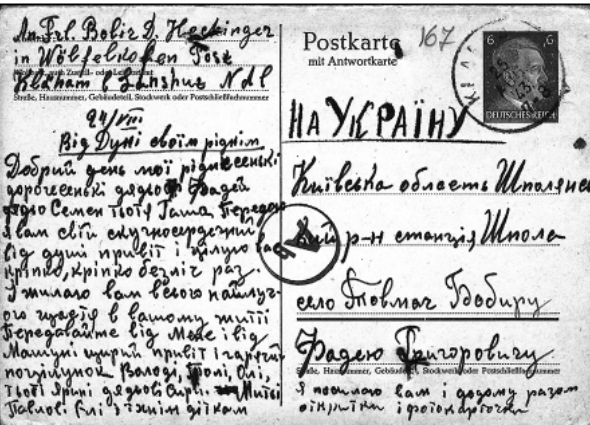 An. Frl. Bobir D. Heckinger
in Wölfelkofen Post
Straße, Hausnummer, Gebäudeteil, Stockwerk oder Postschließfachnummer
24/VIII
Від Дуні своїм рідним
Добрий день мої ріднесенькі
дорогесенькі дядьо Фадей
дядьо Семен тьотя Гаша. Передаю
я вам свій скучносердечний
від душі привіт і цілую вас
кріпко, кріпко безліч раз.
І жилаю вам всього найлуч-
ого щастя в вашому житті
Передавайте від мене і від
щирий привіт і гарячий
поцілунок Володі, Олі,
тьоті Ярині дядьові
Павлові Єлі з їхнім діткам
Postkarte
mit Antwortkarte
167
6 6
DEUTSCHES REICH
НА УКРАЇНУ
Київська область Шполянс
кий р-н станція Шпола
село Товмач Бобиру
Фадею Григоровичу
Straße, Hausnummer, Gebäudeteil, Stockwerk oder Postschließfachnummer
я посилаю вам і додому разом
открітки і фотокарточки